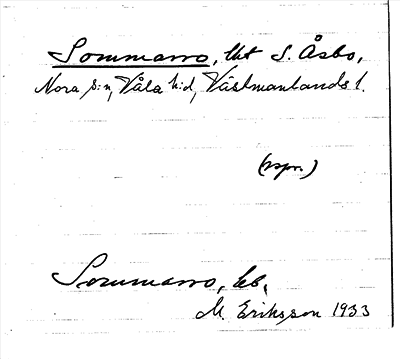 Sommarro, lht S. Åsbo,
Nora s:n, Våla h:d, Västmanlands l.
(rspr.)
Sommarro, lb.
M. Eriksson 1933